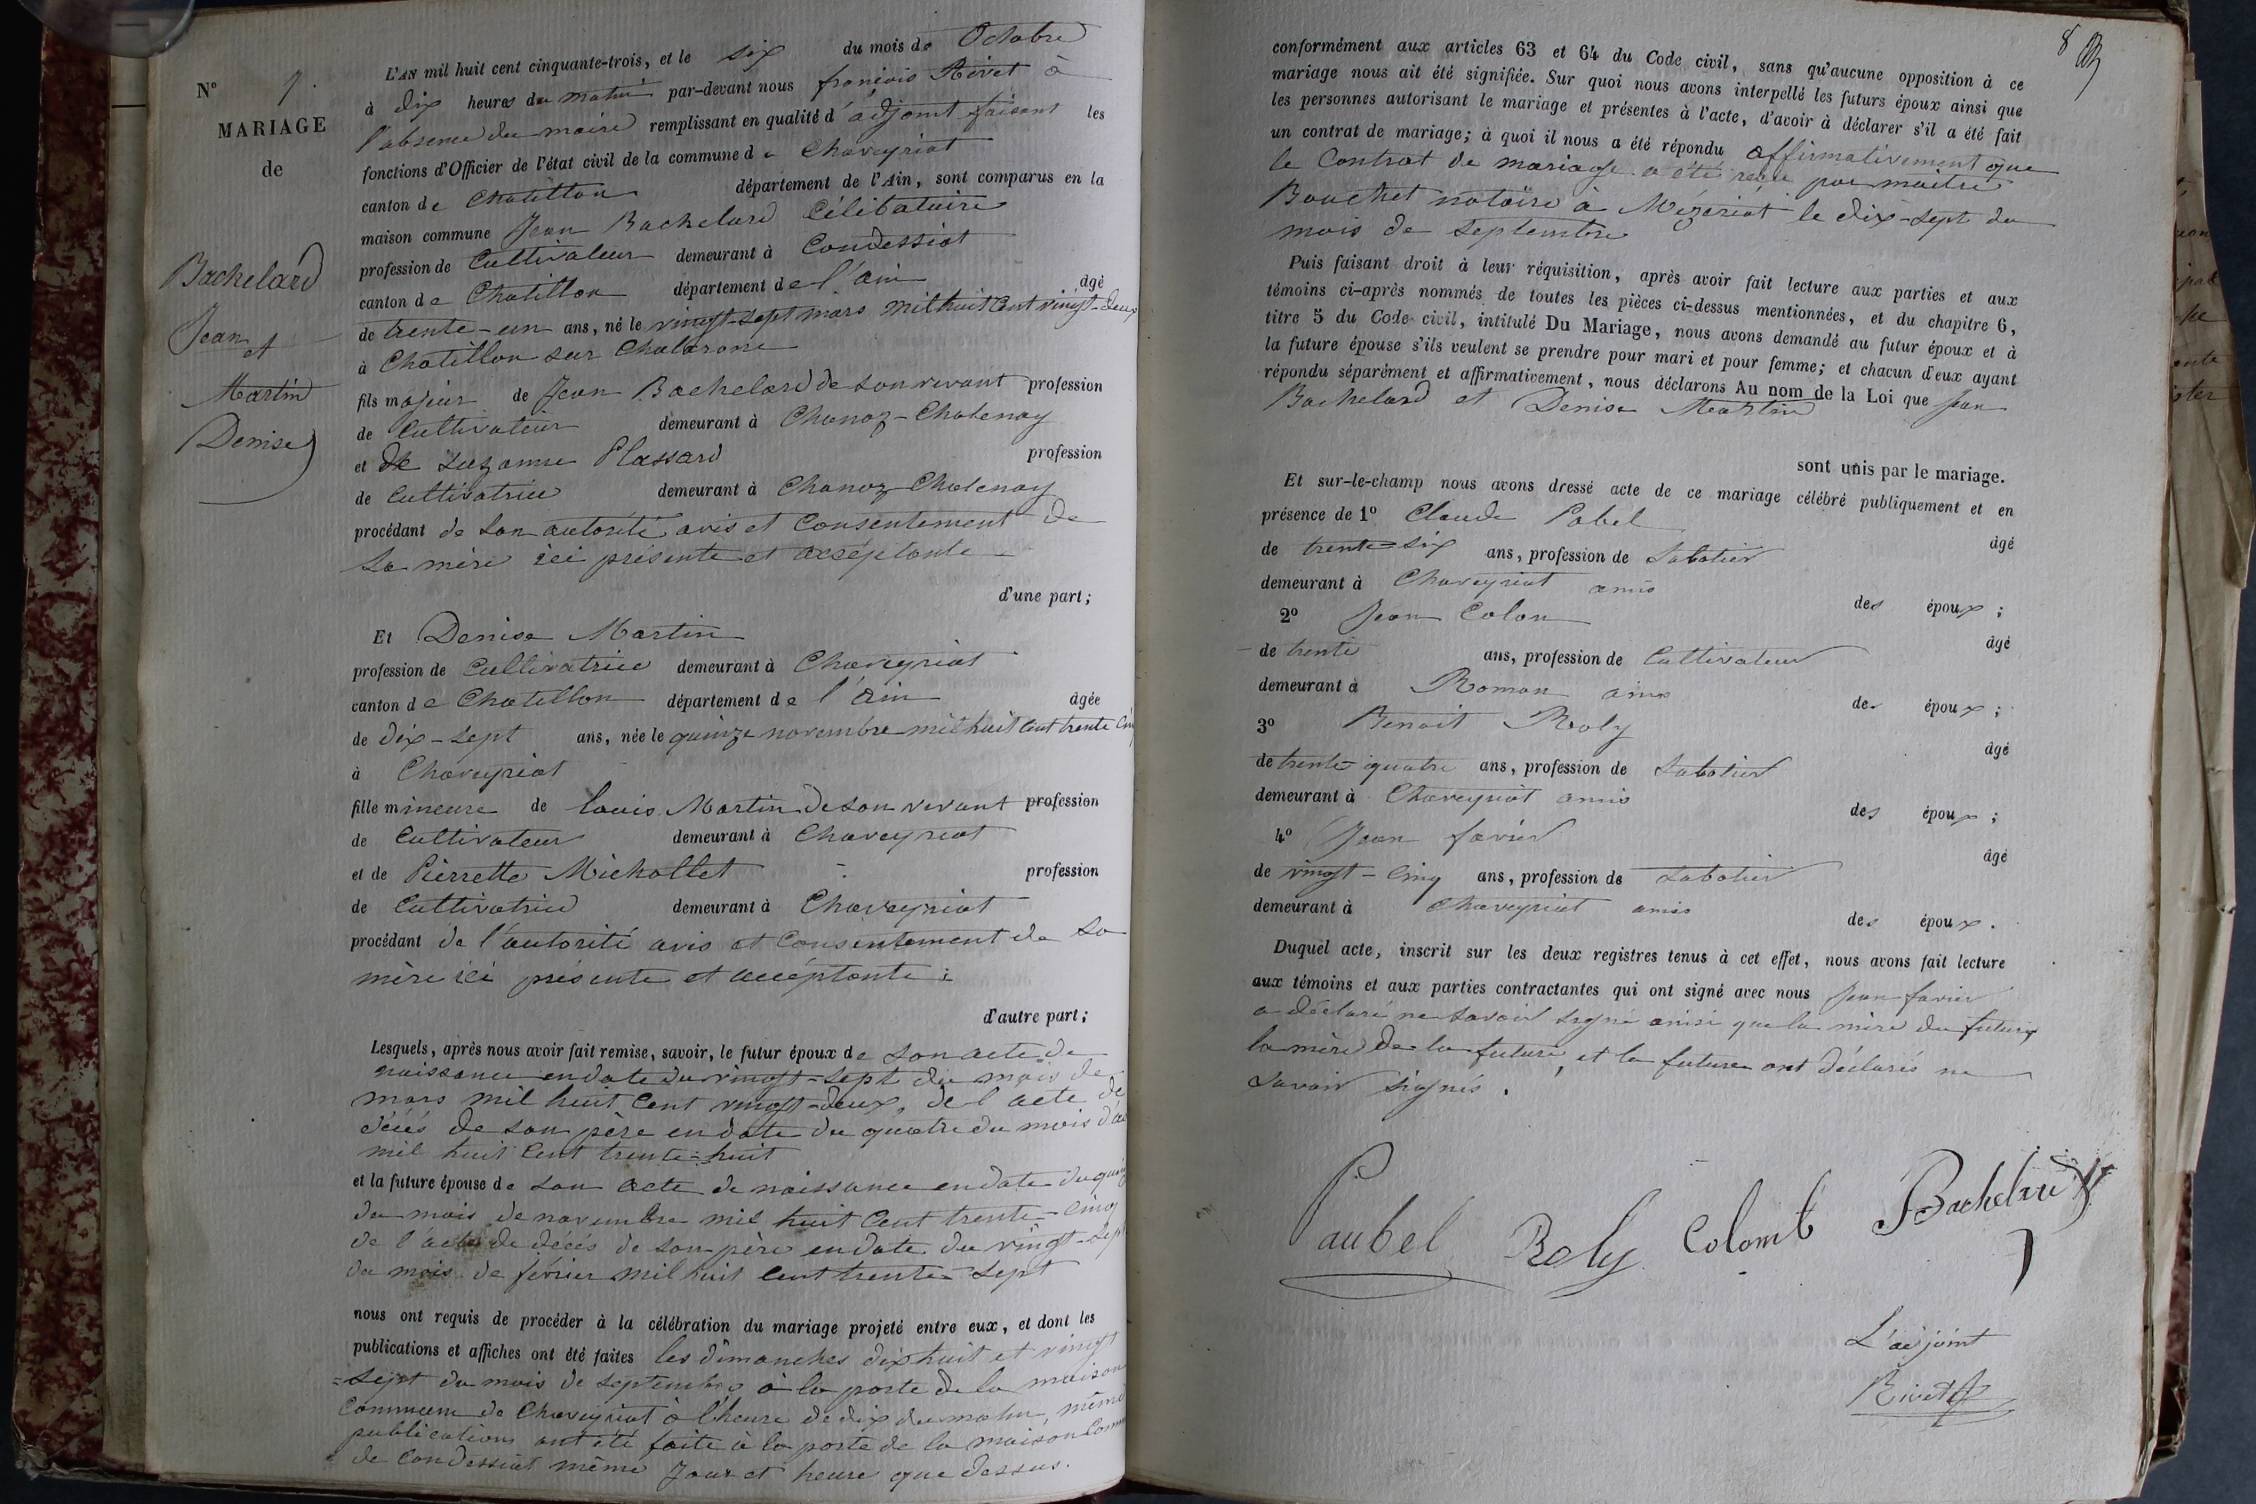 N° 7.
MARIAGE
de
Bachelard
Jean
et
Martin
Denise
L'AN mil huit cent cinquante-trois, et le six du mois de Octobre
à dix heures du matin par-devant nous françois Rivet à
l'absence du maire remplissant en qualité d'adjoint faisant les
fonctions d'Officier de l'état civil de la commune de Chaveyriat
canton de Chatillon département de l'Ain, sont comparus en la
maison commune Jean Bachelard Célibataire
profession de Cultivateur demeurant à Condessiat
canton de Chatillon département de l'ain âgé
de trente-un ans, né le vingt-sept mars mil huit cent vingt-deux
à Chatillon sur Chalarone
fils majeur de Jean Bachelard de son vivant profession
de Cultivateur demeurant à Chanoz-Chatenay
et de Suzanne Plassard profession
de Cultivatrice demeurant à Chanoz Chatenay
procédant de son autorité avis et Consentement de
Sa mère ici présente et accéptante
d'une part;
Et Denise Martin
profession de Cultivatrice demeurant à Chaveyriat
canton de Chatillon département de l'ain âgée
de dix-sept ans, née le quinze novembre mil huit cent trente
à Chaveyriat
fille mineure de louis Martin de son vivant profession
de Cultivateur demeurant à Chaveyriat
et de Pierrette Michollet profession
de Cultivatrice demeurant à Chaveyriat
procédant de l'autorité avis et Consentement de Sa
mère ici présente et accéptante :
d'autre part;
Lesquels, après nous avoir fait remise, savoir, le futur époux de son acte de
naissance en date du vingt-sept du mois de
mars mil huit Cent vingt-deux, de l'acte de
décès de son père en date du quatre du mois
mil huit Cent trente-huit
et la future épouse de son acte de naissance en date du
du mois de novembre mil huit Cent trente-cinq
de l'acte de décés de son père en date du vingt-sept
du mois de février mil huit Cent trente-sept
nous ont requis de procéder à la célébration du mariage projeté entre eux, et dont les
publications et affiches ont été faites les dimanches dix huit et vingt
=sept du mois de septembre à la porte de la maison
Commune de Chaveyriat à l'heure de dix du matin, même
publications ont été faite à la porte de la maison
de Condessiat même Jour et heure que dessus.
8
conformément aux articles 63 et 64 du Code civil, sans qu'aucune opposition à ce
mariage nous ait été signifiée. Sur quoi nous avons interpellé les futurs époux ainsi que
les personnes autorisant le mariage et présentes à l'acte, d'avoir à déclarer s'il a été fait
un contrat de mariage; à quoi il nous a été répondu affirmativement que
le Contrat de mariage a été reçu par maitre
Bouchet notaire à Mézeriat le dix-sept du
mois de Septembre
Puis faisant droit à leur réquisition, après avoir fait lecture aux parties et aux
témoins ci-après nommés de toutes les pièces ci-dessus mentionnées, et du chapitre 6,
titre 5 du Code civil, intitulé Du Mariage, nous avons demandé au futur époux et à
la future épouse s'ils veulent se prendre pour mari et pour femme; et chacun d'eux ayant
répondu séparément et affirmativement, nous déclarons Au nom de la Loi que Jean
Bachelard et Denise Martin
sont unis par le mariage.
Et sur-le-champ nous avons dressé acte de ce mariage célébré publiquement et en
présence de 1° Claude Pobel âgé
de trente-six ans, profession de Sabotier
demeurant à Chaveyriat amis des époux ;
2° Jean Colon âgé
de trente ans, profession de Cultivateur
demeurant à Roman amis des époux ;
3° Benoit Roly âgé
de trente-quatre ans, profession de Sabotier
demeurant à Chaveyriat amis des époux ;
4° Jean favier âgé
de vingt-cinq ans, profession de Sabotier
demeurant à Chaveyriat amis des époux.
Duquel acte, inscrit sur les deux registres tenus à cet effet, nous avons fait lecture
aux témoins et aux parties contractantes qui ont signé avec nous Jean favier
a déclaré ne savoir signé ainsi que la mère du futur,
la mère de la future, et la future ont déclarés ne
savoir signés.
Paubel Roly Colomb Bachelard
L'adjoint
Rivet